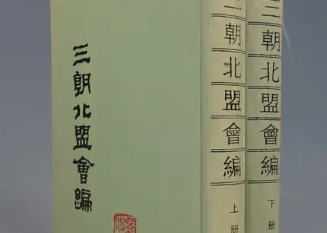 三朝北盟會編
三朝北盟會編
上册
三朝北盟會編
下册